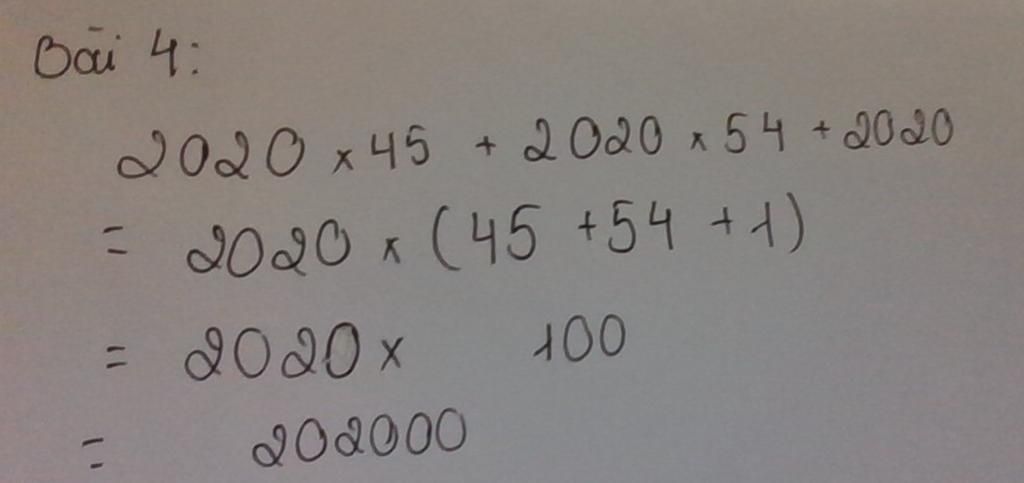 Bài 4:
2020 x 45 + 2020 x 54 + 2020
= 2020 x (45 + 54 + 1)
= 2020 x 100
= 202000